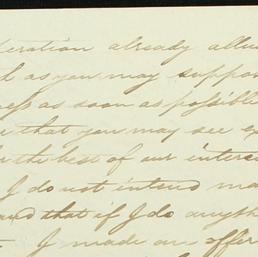 eration already allu
t as you may suppo
ness as soon as possible
that you may see ex
the best of our interes
I do not intend ma
and that if I do anyth
I made an offer